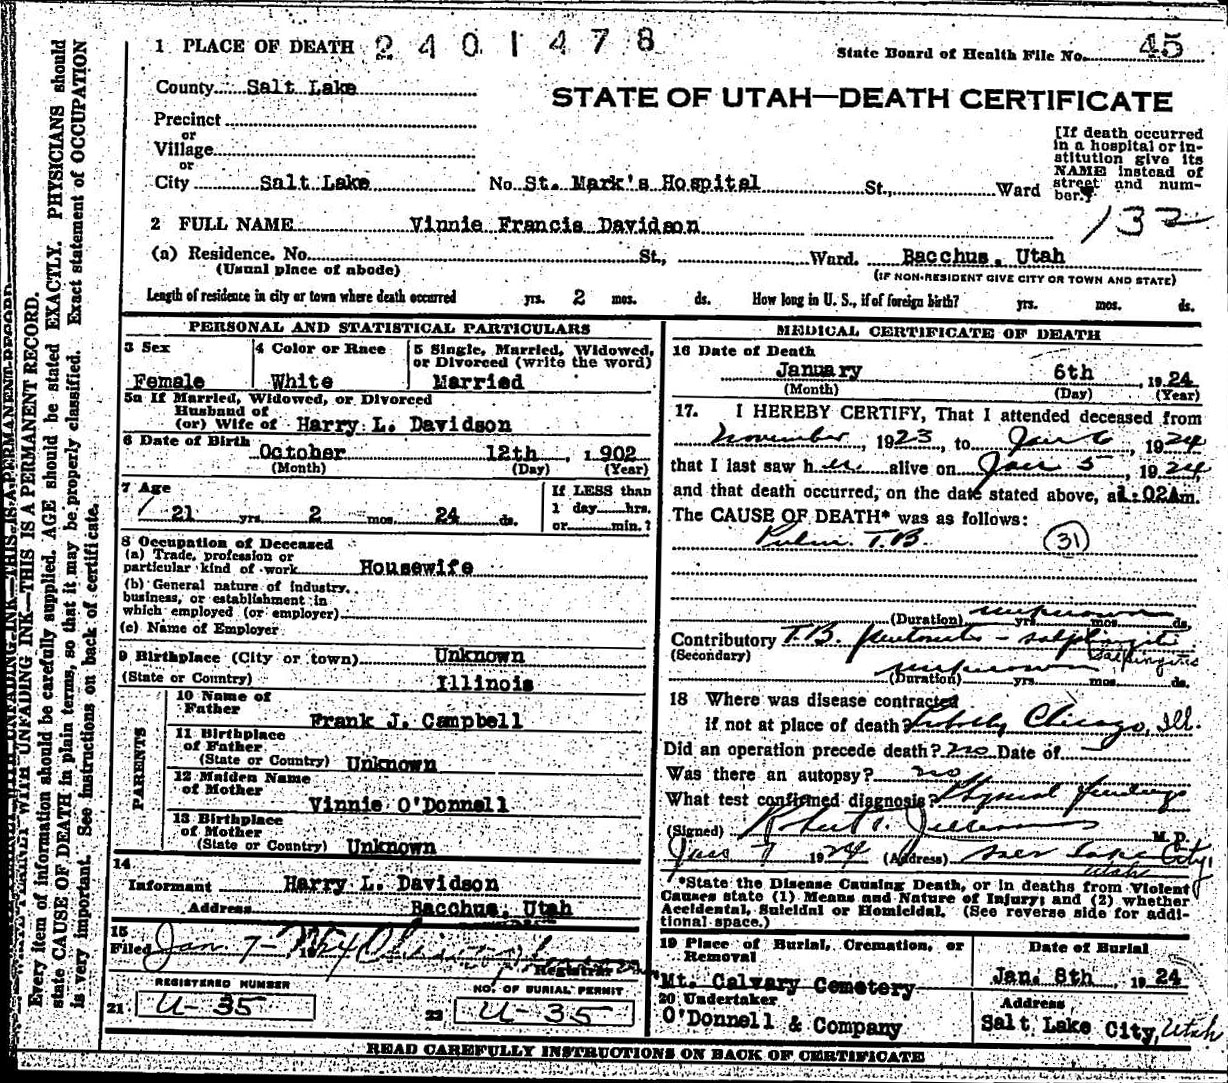 1 PLACE OF DEATH 2401478 State Board of Health File No. 45
County Salt Lake
STATE OF UTAH—DEATH CERTIFICATE
Precinct
or
Village
or
City Salt Lake No. St. Mark's Hospital St., Ward
[If death occurred
in a hospital or in-
stitution give its
NAME instead of
street and num-
ber.]
132
2 FULL NAME Vinnie Francis Davidson
(a) Residence. No. St., Ward. Bacchus, Utah
(Usual place of abode) (IF NON-RESIDENT GIVE CITY OR TOWN AND STATE)
Length of residence in city or town where death occurred yrs. 2 mos. ds. How long in U. S., if of foreign birth? yrs. mos. ds.
PERSONAL AND STATISTICAL PARTICULARS
3 Sex 4 Color or Race 5 Single, Married, Widowed,
or Divorced (write the word)
Female White Married
5a If Married, Widowed, or Divorced
Husband of
(or) Wife of Harry L. Davidson
6 Date of Birth
October 12th, 1902
(Month) (Day) (Year)
7 Age If LESS than
1 day hrs.
21 yrs. 2 mos. 24 ds. or min.?
8 Occupation of Deceased
(a) Trade, profession or
particular kind of work Housewife
(b) General nature of industry,
business, or establishment in
which employed (or employer)
(c) Name of Employer
9 Birthplace (City or town) Unknown
(State or Country) Illinois
PARENTS
10 Name of
Father Frank J. Campbell
11 Birthplace
of Father
(State or Country) Unknown
12 Maiden Name
of Mother Vinnie O'Donnell
13 Birthplace
of Mother
(State or Country) Unknown
14
Informant Harry L. Davidson
Address Bacchus, Utah
15
Filed Jan. 7- 19
Registrar
REGISTERED NUMBER NO. OF BURIAL PERMIT
21 U-35 22 U-35
MEDICAL CERTIFICATE OF DEATH
16 Date of Death
January 6th, 1924
(Month) (Day) (Year)
17. I HEREBY CERTIFY, That I attended deceased from
November, 1923, to Jan 6, 1924
that I last saw her alive on Jan 5, 1924,
and that death occurred, on the date stated above, at 1:02Am.
The CAUSE OF DEATH* was as follows:
Pulm. T.B. (31)
unknown
(Duration) yrs. mos. ds.
Contributory T.B. peritonitis - salpingitis
(Secondary) salpingitis
unknown
(Duration) yrs. mos. ds.
18 Where was disease contracted
if not at place of death? Probably Chicago, Ill.
Did an operation precede death? no Date of
Was there an autopsy? no
What test confirmed diagnosis? Physical findings
(Signed) M. D.
Jan 7 1924 (Address) Salt Lake City,
Utah
*State the Disease Causing Death, or in deaths from Violent
Causes state (1) Means and Nature of Injury; and (2) whether
Accidental, Suicidal or Homicidal. (See reverse side for addi-
tional space.)
19 Place of Burial, Cremation, or Date of Burial
Removal
Mt. Calvary Cemetery Jan. 8th, 1924
20 Undertaker Address
O'Donnell & Company Salt Lake City, Utah
READ CAREFULLY INSTRUCTIONS ON BACK OF CERTIFICATE
WITH UNFADING INK—THIS IS A PERMANENT RECORD.
Every item of information should be carefully supplied. AGE should be stated EXACTLY. PHYSICIANS should
state CAUSE OF DEATH in plain terms, so that it may be properly classified. Exact statement of OCCUPATION
is very important. See instructions on back of certificate.